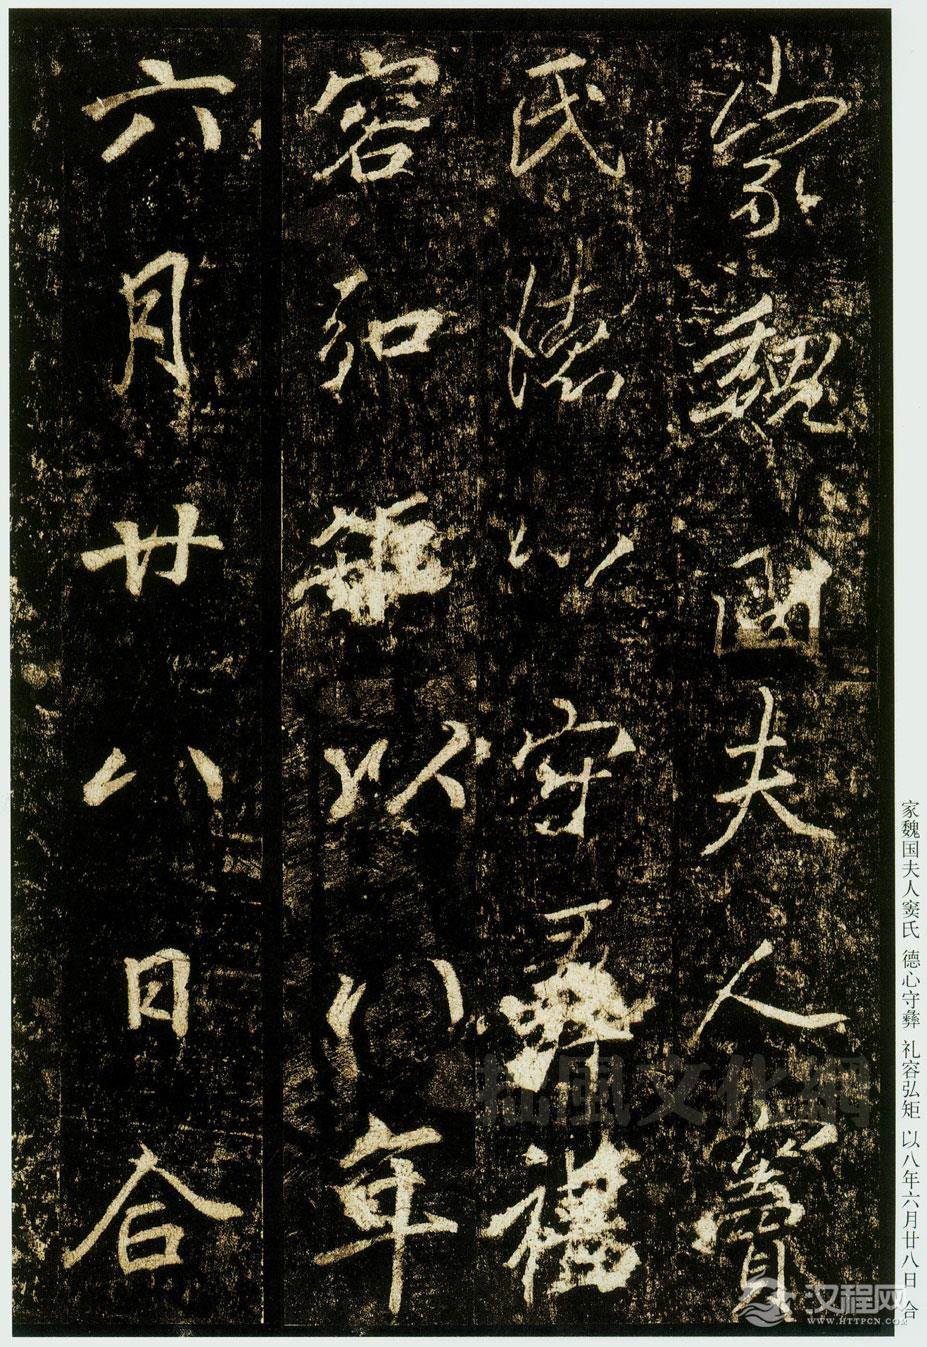 家魏國夫人竇
氏德心守彝禮
容弘矩以八年
六月廿八日合
家魏国夫人窦氏 德心守彝 礼容弘矩 以八年六月廿八日 合
松風文化網
汉程网
WWW.HTTPCN.COM